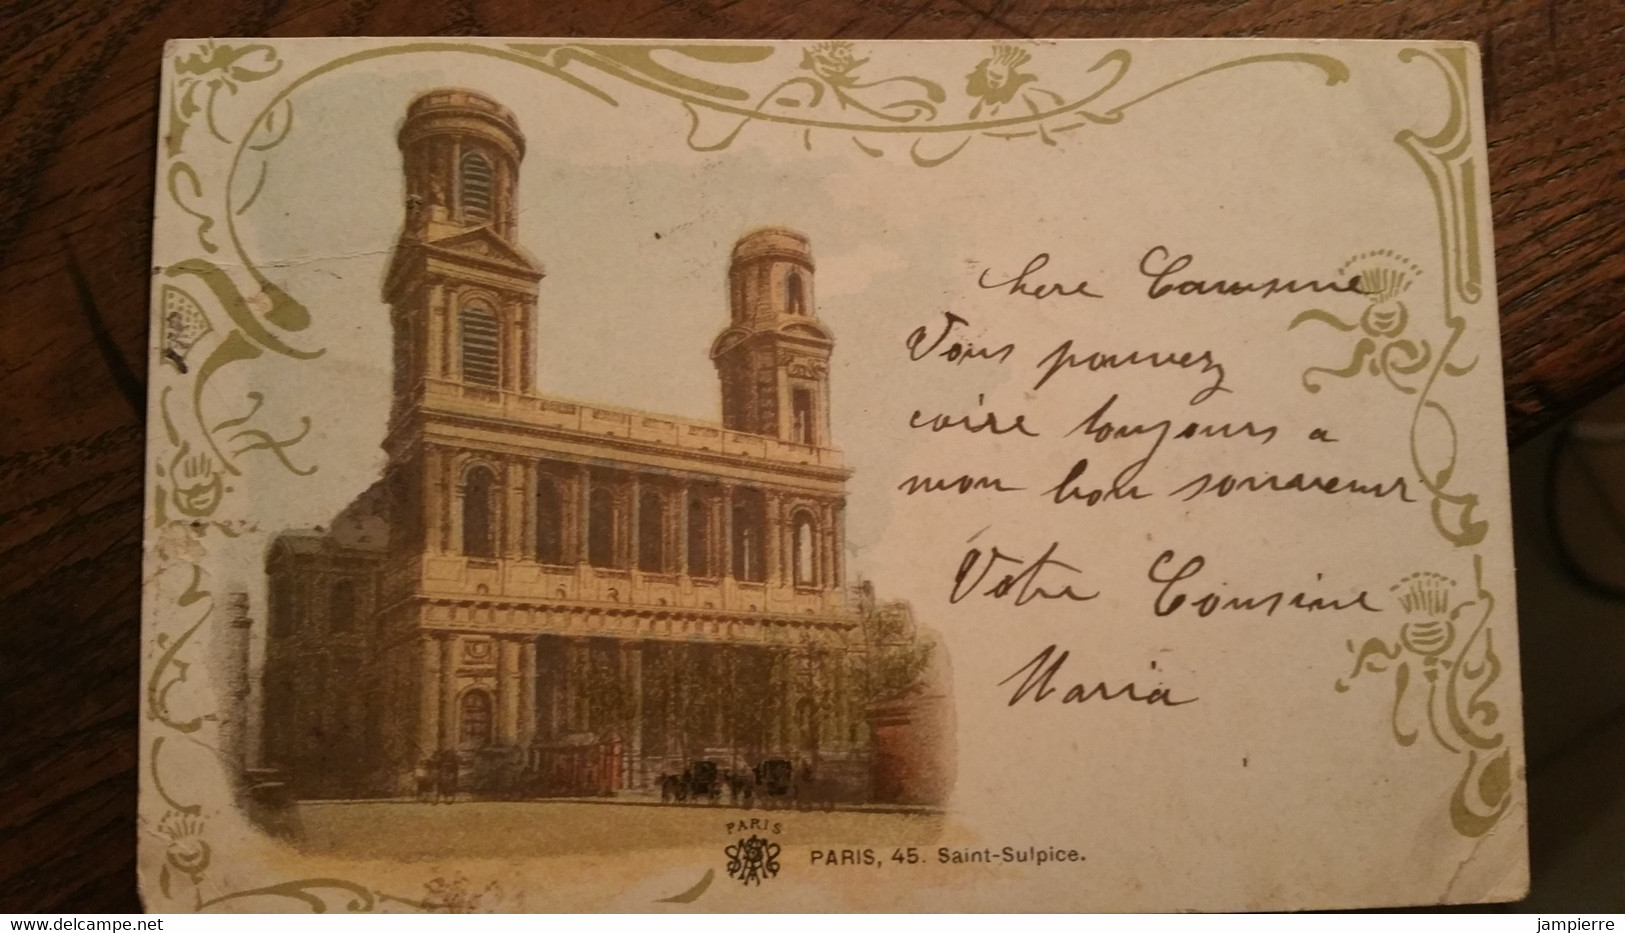 chere Cousine
Vous pouvez
coire toujours a
mon bon souvenir
Votre Cousine
Maria
PARIS
PARIS, 45. Saint-Sulpice.
www.delcampe.net
jampierre